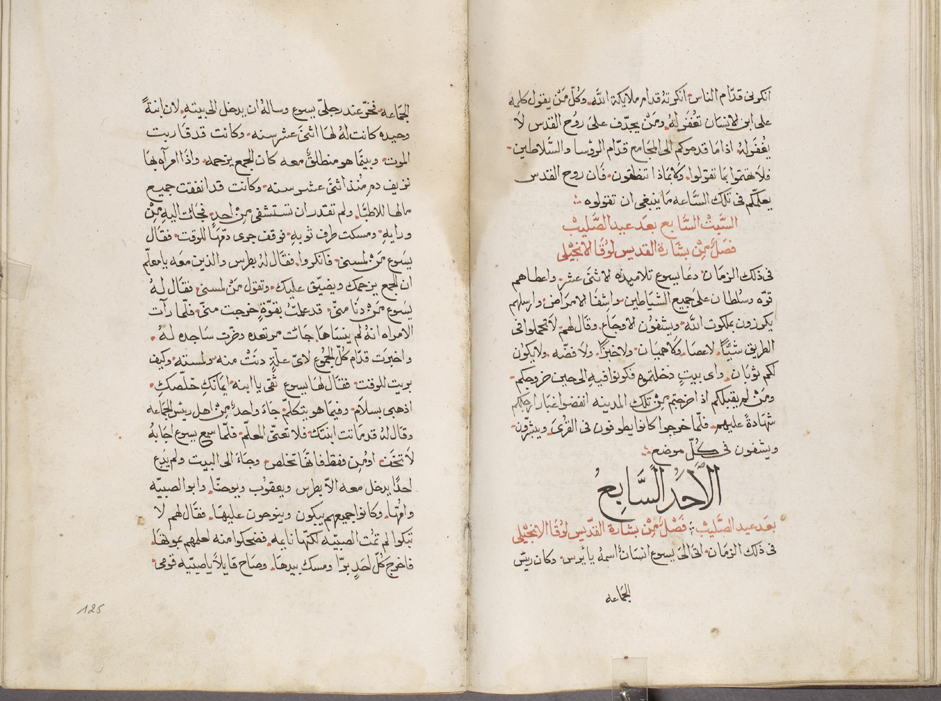 انكرنى قدّام الناس انكرته قدام ملايكة الله وكلّ مَن يقول كلمه
على ابن الانسان تغفر لهُ ومَن يجدّف على روح القدس لا
يغفر له اذا ما قدموكم الى المجامع قدّام الرؤسا والسّلاطين
فلا تهتموا بما تقولوا وكا بماذا تنطقون فان روح القدس
يعلّمكم فى تلك السّاعه ما ينبغى ان تقولوه
السّبت السّابع بعد عيد الصّليب
فصل من بشارة القديس لوقا الانجيلى
فى ذلك الزمان دعا يسوع تلاميذه لاثنى عشر واعطاهم
قوّه وسلطان على جميع الشياطين واشفا الامراض وارسلهم
يكرزون بملكوت الله ويشفون الاوجاع وقال لهم لا تحملوا فى
الطريق شيًّا لا عصا ولا هميان ولا خبزًا ولا فضه ولا يكون
لكم ثوبان واى بيتٍ دخلتموه فكونوا فيه الى حين خروجكم
ومَن لم يقبلكم اذا خرجتم من تلك المدينه انفضوا غبار ارجلكم
شهادةً عليهم فلمّا خرجوا كانوا يطوفون فى القرى ويبشّرون
ويشفون فى كلّ موضع
الاَحد السَّابعُ
بعد عيد الصّليب فصل من بشارة القدّيس لوقا الانجيلى
فى ذلك الزمان اتى الى يسوع انسان اسمهُ يايرس وكان ريّس
الجماعه
الجماعه فخرّ عند رجلىّ يسوع وسالهُ ان يدخل الى بيته لان ابنةً
وحيده كانت لهُ لها اثنى عشر سنه وكانت قد قاربت
الموت وبينما هو منطلقٌ معه كان الجمع يزحمه واذا امرآه بها
نزيف دم منذ اثنى عشر سنه وكانت قد انفقت جميع
مالها للاطبّا ولم تقتدر ان تستشفى من احدٍ فجات اليه من
ورايه ومسكت طرف ثوبه فوقف جرى دمّها للوقت فقال
يسوع مَن لمسنى فانكروا فقال لهُ بطرس والذين معه يا معلّم
ان الجمع يزحمك ويضيّق عليك وتقول مَن لمسنى فقال لهُ
يسوع من دنا منّى قد علمتُ بقوّةٍ خرجت منّى فلمّا رآت
الامراه انهُ لم ينساها جات مرتعده وخرّت ساجده لهُ
واخبرت قدّام كلّ الجموع لاىّ علّةٍ دنت منه ولمسته وكيف
بريت للوقت فقال لها يسوع ثقى يا ابنه ايمانكِ خلّصكِ
اذهبى بسلام وفيما هو يتكلّم جاءَ واحدٌ من اهل ريس الجماعه
وقال لهُ قد ماتت ابنتك فلا تعنّى المعلّم فلمّا سمع يسوع اجابهُ
لا تخف اومن فقط فانها تخلص وجاءَ الى البيت ولم يدع
احدًا يدخل معه الاّ بطرس ويعقوب ويوحنّا وابو الصبيّه
وامّها وكانوا جميعهم يبكون وينوحون عليها فقال لهم لا
تبكوا لم تمت الصبيّه لكنّها نايمه فضحكوا منه لعلمهم بموتها
فاخرج كلّ احدٍ برّا ومسك بيدها وصاح قايلاً يا صبيّه قومى
125